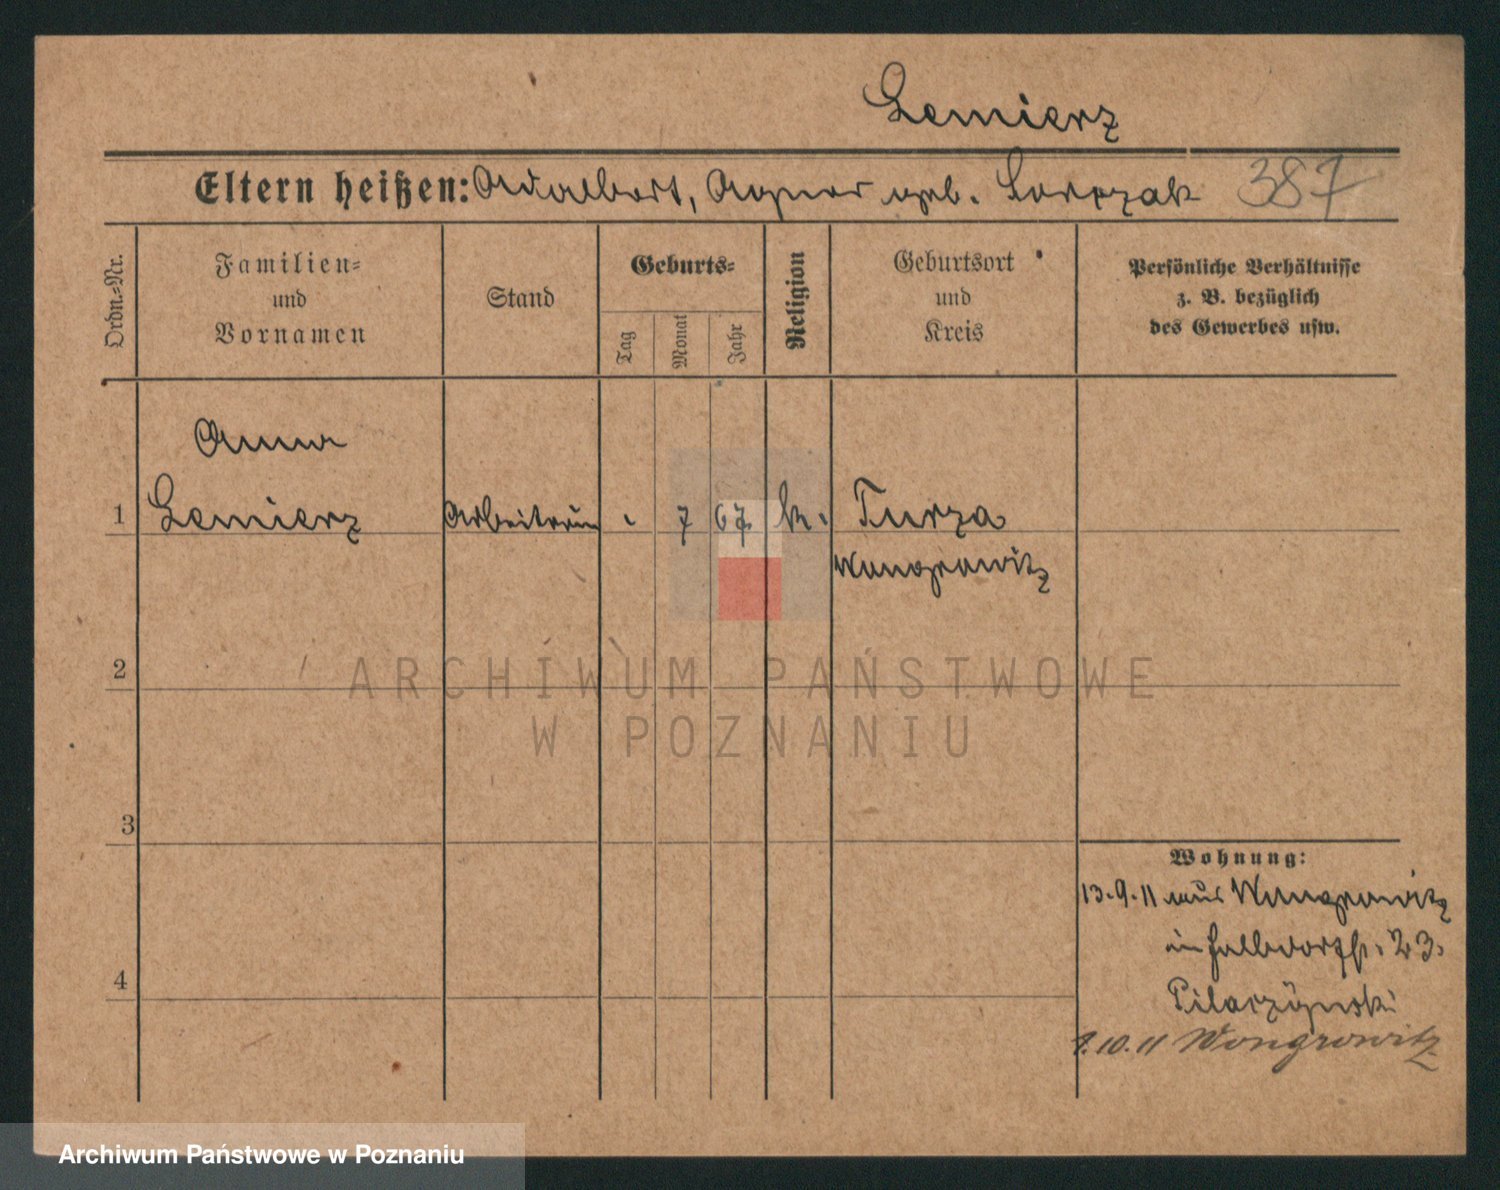 Lemierz
Eltern heißen: Adalbert, Agnes geb. Lorczak 387
Ordn.=Nr.
Familien=
und
Vornamen
Stand
Geburts=
Tag
Monat
Jahr
Religion
Geburtsort
und
Kreis
Persönliche Verhältnisse
z. B. bezüglich
des Gewerbes usw.
Anna
1 Lemierz Arbeiterin - 7 67 k. Turza
Wongrowitz
2
ARCHIWUM PAŃSTWOWE
W POZNANIU
3
Wohnung:
13.9.11 aus Wongrowitz
in Halbdorfstr. 23.
4
Pilarzynski
1.10.11 Wongrowitz
Archiwum Państwowe w Poznaniu